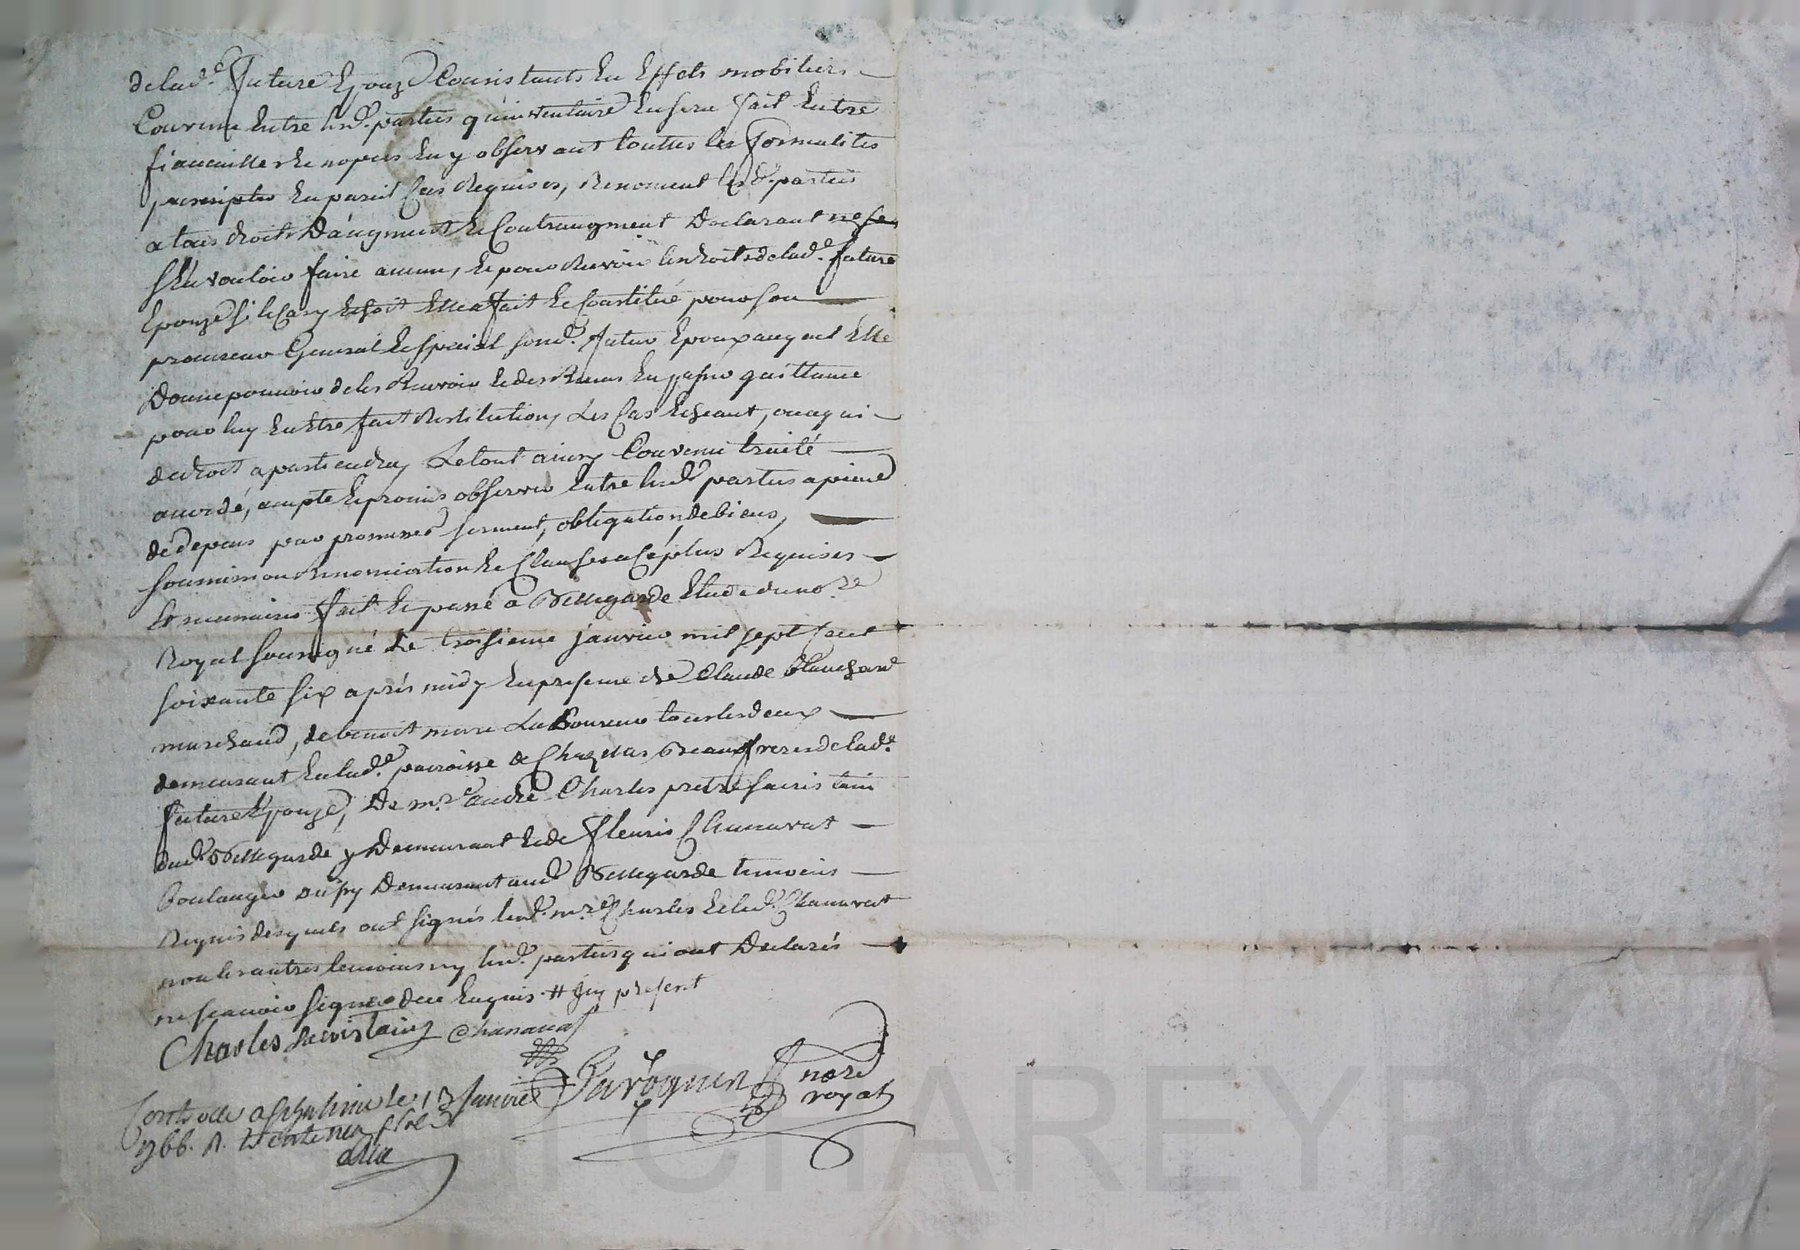 de lad.e future Epouze Consistants En Effets mobiliers
Convenu Entre lesd. parties qu'inventaire En sera fait Entre
fiancaille Et nopces En y observant touttes les formalites
prescriptes En pareil Cas Requises, Renoncent lesd. parties
a tous droits D'augment Et Contraugment Declarant ne se
s'En vouloir faire aucun, Et pour Recevoir les droits de lad.e future
Epouze si le Cas y Eschoit Elle a fait Et Constitué pour son
procureur General Et special sond. futur Epoux auquel Elle
Donne pouvoir de les Recevoir Et des Recus En passer quittance
pour luy En Etre fait Restitution, Le Cas Echeant, ou a qui
de droit appartiendra, Le tout ainsy Convenu traité
accordé, accepté Et promis observer Entre lesd. parties a peine
de depens par promesse serment, obligation, de biens,
soumission Renonciation Et Clauses a Ce plus Requises
Et necessaires fait Et passé a Bellegarde Etude du no.re
Royal soussigné Le troisieme janvier mil sept Cent
soixante six après midy En presence de Claude Blanchard
marchand, de benoit Laboureur tous les deux
demeurant En lad.e parroisse de Chazelles Beaux freres de lad.e
future Epouze, De m.re andré Charles pretre sacristain
dud. Bellegarde y Demeurant Et de fleuris Chanavat
Boulanger aussy Demeurant aud. Bellegarde temoins
Requis desquels ont signés led. m.re Charles Et led. Chanavat
non les autres temoins ny lesd. parties qui ont Declarés
ne scavoir signer de ce Enquis # present
Charles sacristain Chanavat
nore
royal
Controlle a le 13 Janvier
1766. R.